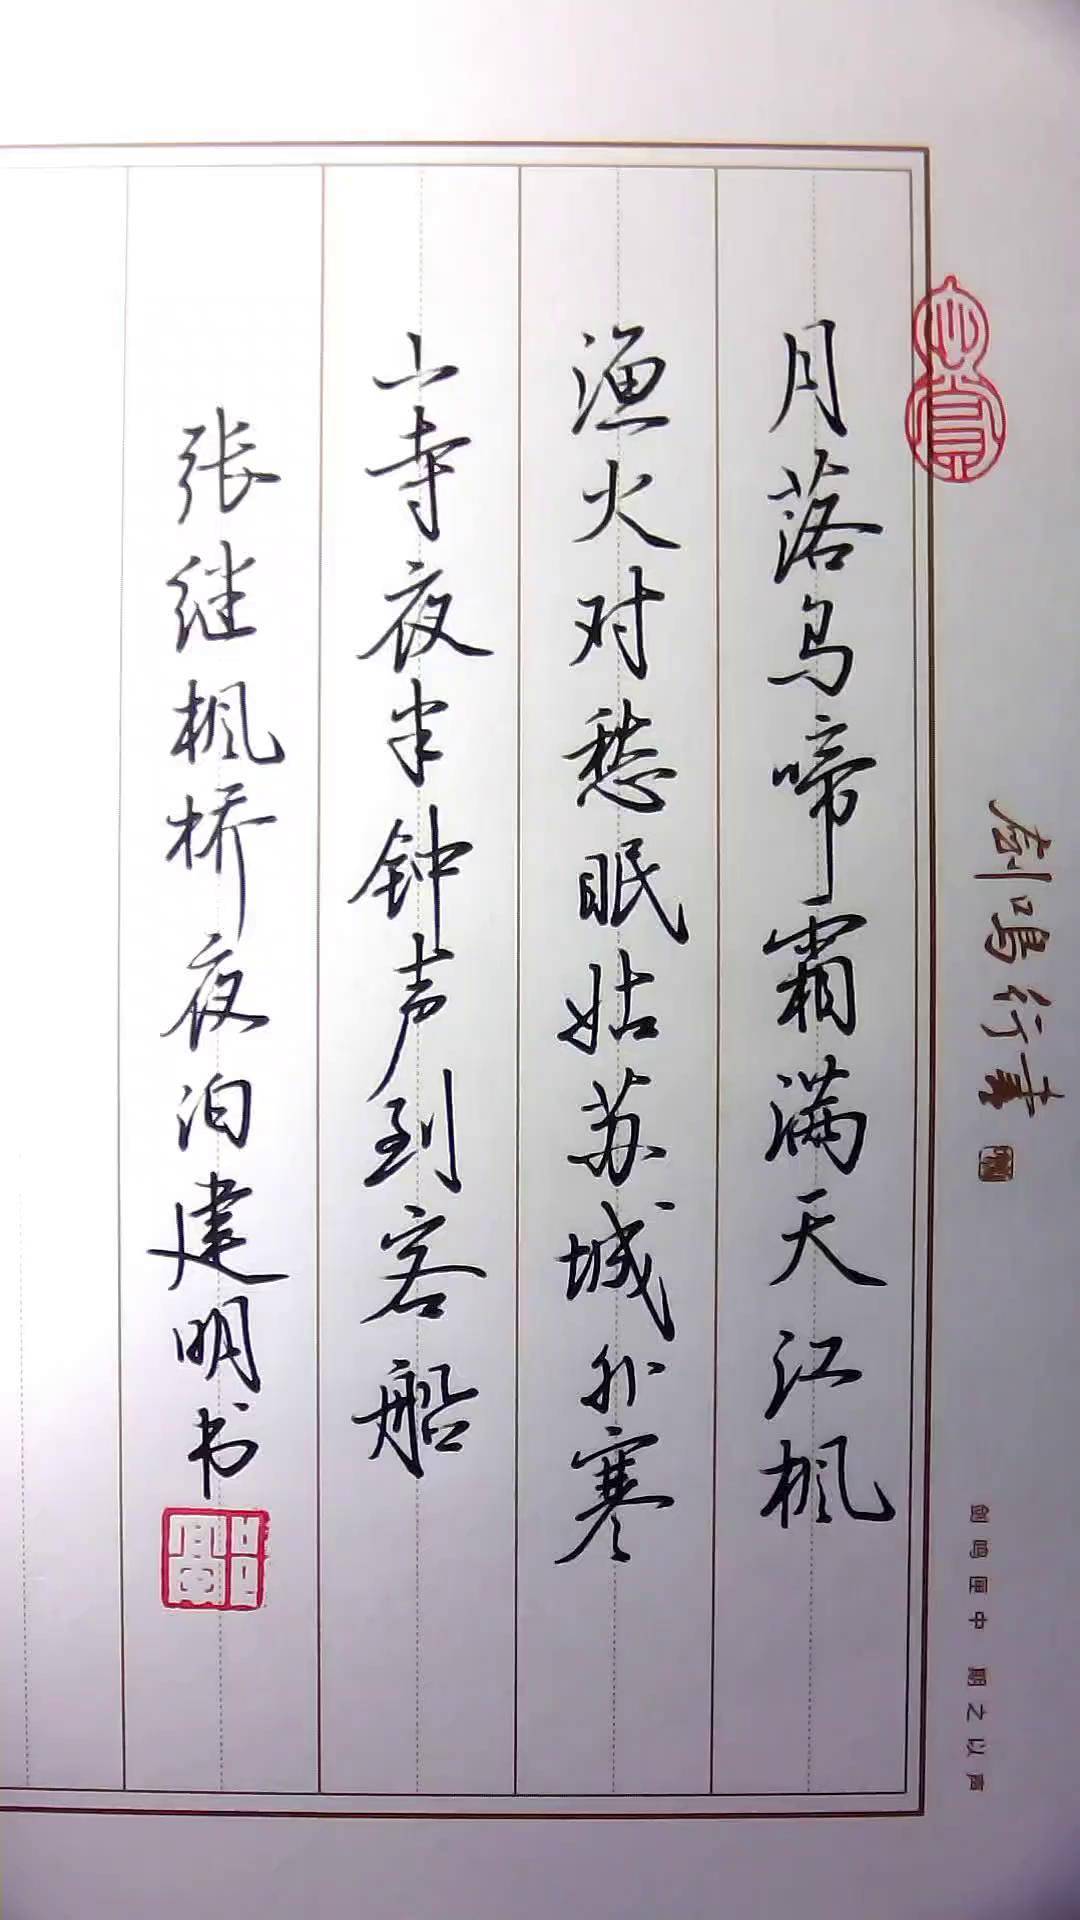 剑鸣行书
剑鸣匣中 期之以声
月落乌啼霜满天江枫
渔火对愁眠姑苏城外寒
山寺夜半钟声到客船
张继枫桥夜泊建明书